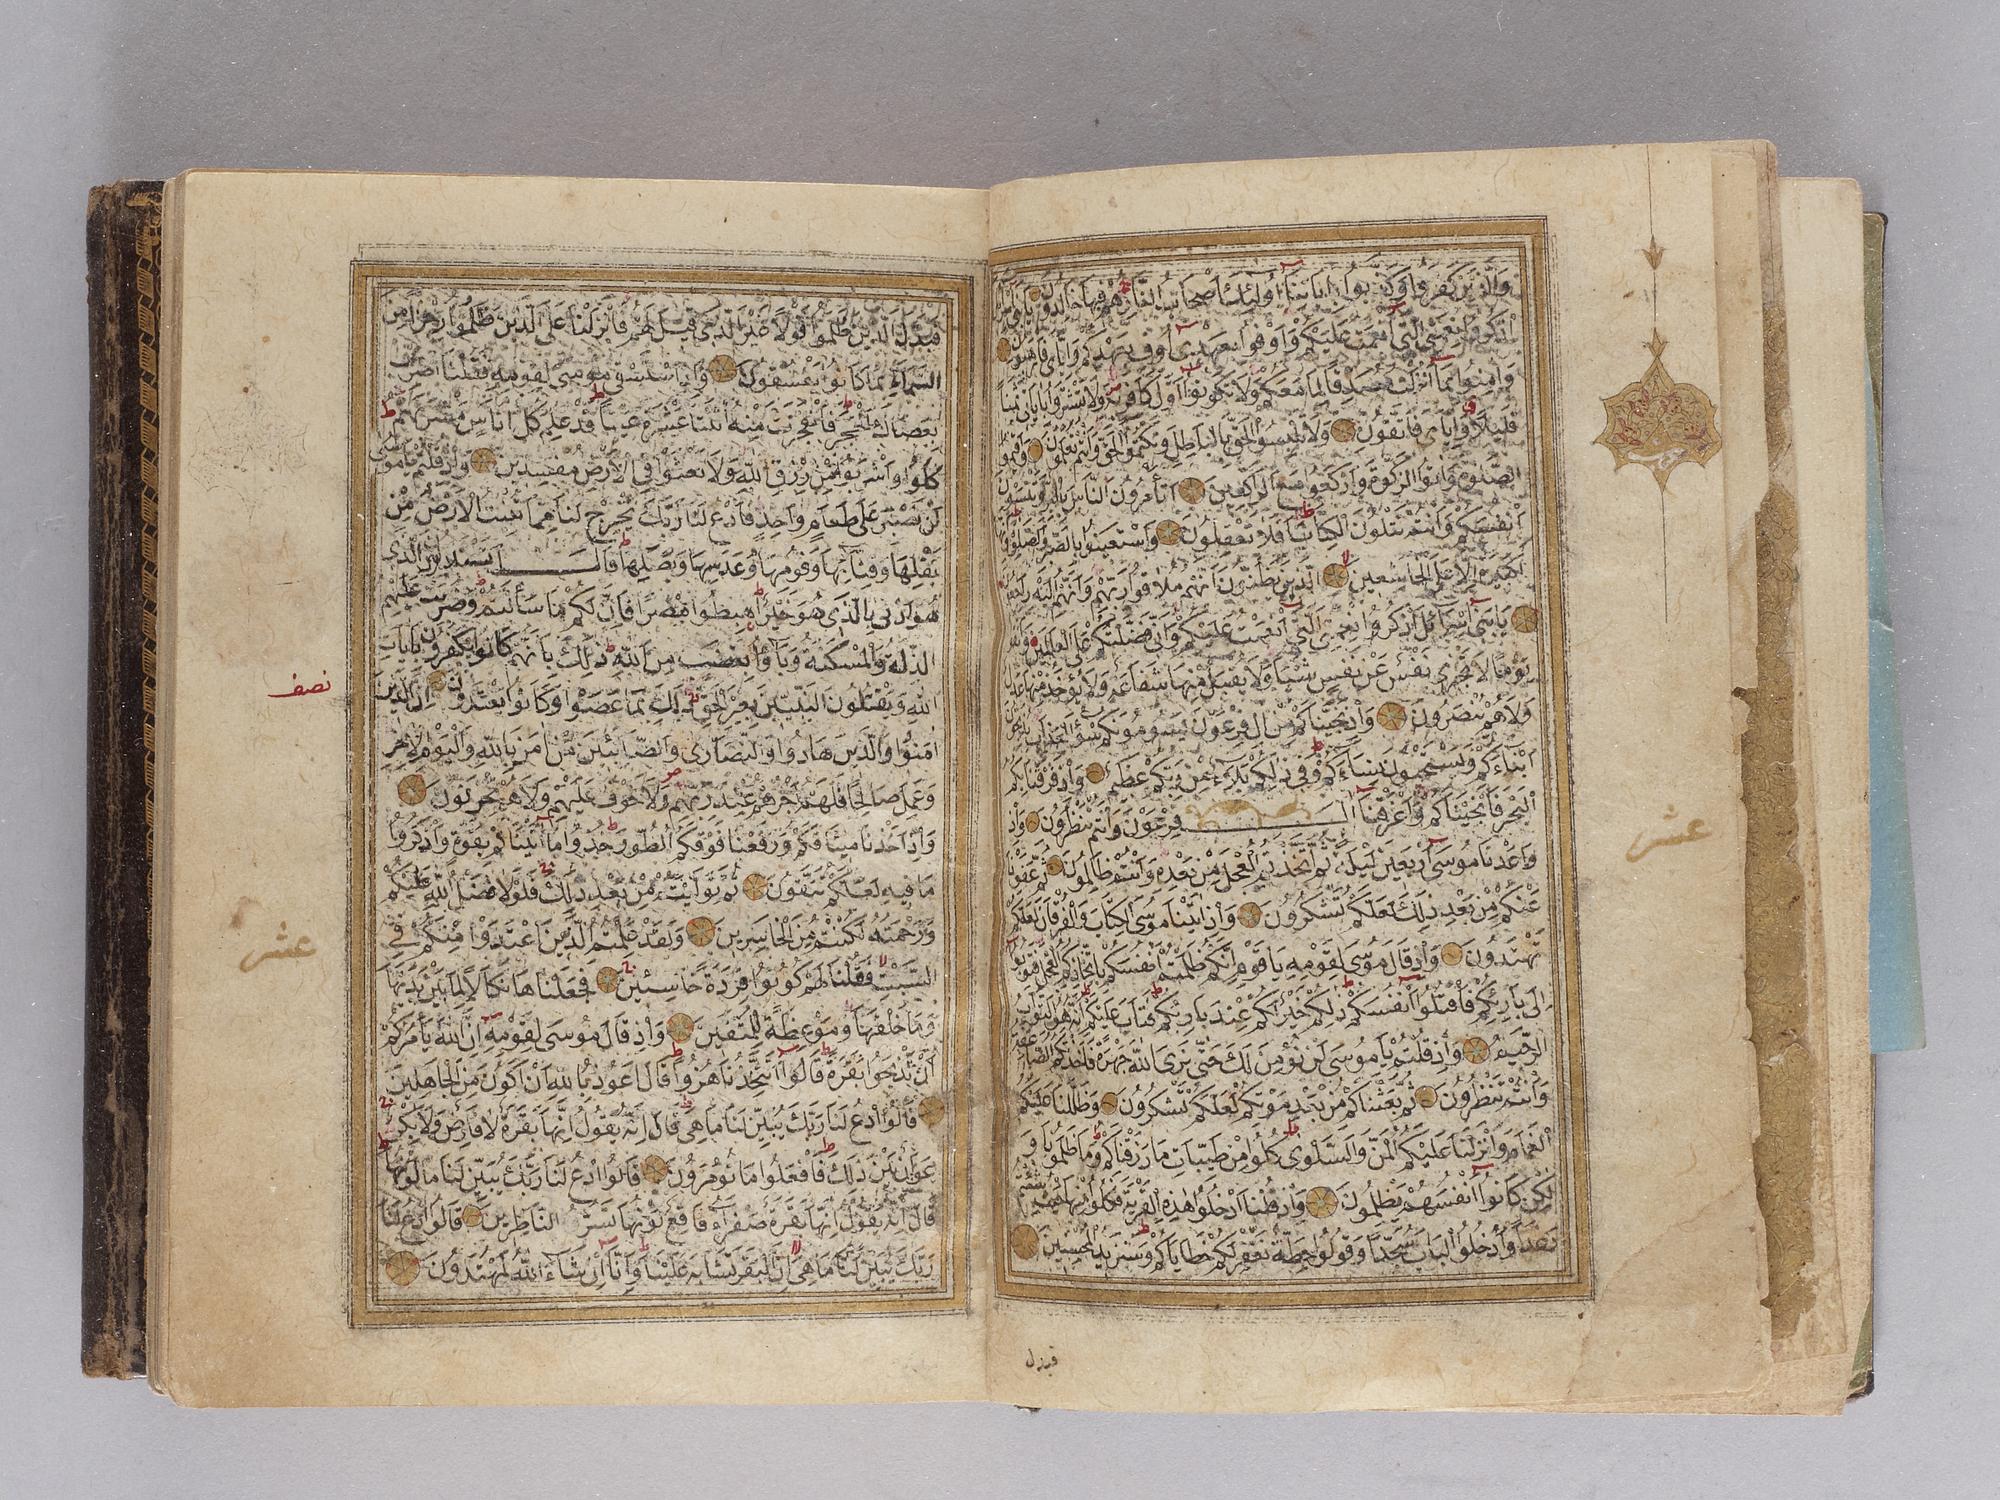 والذين كفروا وكذبوا باياتنا اولئك اصحاب النار هم فيها خالدون يا بني
اذكروا نعمتي التي انعمت عليكم واوفوا بعهدي اوف بعهدكم واياي فارهبون
وامنوا بما انزلت مصدقا لما معكم ولا تكونوا اول كافر به ولا تشتروا باياتي ثمنا
قليلا واياي فاتقون ولا تلبسوا الحق بالباطل وتكتموا الحق وانتم تعلمون واقيموا
الصلوة واتوا الزكوة واركعوا مع الراكعين اتأمرون الناس بالبر وتنسون
انفسكم وانتم تتلون الكتاب افلا تعقلون واستعينوا بالصبر والصلوة وانها
لكبيرة الا على الخاشعين الذين يظنون انهم ملاقوا ربهم وانهم اليه راجعون
يا بني اسرائل اذكروا نعمتي التي انعمت عليكم واني فضلتكم على العالمين واتقوا
يوما لا تجزي نفس عن نفس شيئا ولا يقبل منها شفاعة ولا يؤخذ منها عدل
ولا هم ينصرون واذ نجيناكم من ال فرعون يسومونكم سوء العذاب يذبحون
ابناءكم ويستحيون نساءكم وفي ذلكم بلاء من ربكم عظيم واذ فرقنا بكم
البحر فانجيناكم واغرقنا ال فرعون وانتم تنظرون واذ
واعدنا موسى اربعين ليلة ثم اتخذتم العجل من بعده وانتم ظالمون ثم عفونا
عنكم من بعد ذلك لعلكم تشكرون واذ اتينا موسى الكتاب والفرقان لعلكم
تهتدون واذ قال موسى لقومه يا قوم انكم ظلمتم انفسكم باتخاذكم العجل فتوبوا
الى بارئكم فاقتلوا انفسكم ذلكم خير لكم عند بارئكم فتاب عليكم انه هو التواب
الرحيم واذ قلتم يا موسى لن نؤمن لك حتى نرى الله جهرة فاخذتكم الصاعقة
وانتم تنظرون ثم بعثناكم من بعد موتكم لعلكم تشكرون وظللنا عليكم
الغمام وانزلنا عليكم المن والسلوى كلوا من طيبات ما رزقناكم وما ظلمونا و
لكن كانوا انفسهم يظلمون واذ قلنا ادخلوا هذه القرية فكلوا منها حيث شئتم
رغدا وادخلوا الباب سجدا وقولوا حطة نغفر لكم خطاياكم وسنزيد المحسنين
عشر
فبدل
فبدل الذين ظلموا قولا غير الذي قيل لهم فانزلنا على الذين ظلموا رجزا من
السماء بما كانوا يفسقون واذ استسقى موسى لقومه فقلنا اضرب
بعصاك الحجر فانفجرت منه اثنتا عشرة عينا قد علم كل اناس مشربهم
كلوا واشربوا من رزق الله ولا تعثوا في الارض مفسدين واذ قلتم يا موسى
لن نصبر على طعام واحد فادع لنا ربك يخرج لنا مما تنبت الارض من
بقلها وقثائها وفومها وعدسها وبصلها قال اتستبدلون الذي
هو ادنى بالذي هو خير اهبطوا مصرا فان لكم ما سألتم وضربت عليهم
الذلة والمسكنة وباؤا بغضب من الله ذلك بانهم كانوا يكفرون بايات
الله ويقتلون النبيين بغير الحق ذلك بما عصوا وكانوا يعتدون ان الذين
امنوا والذين هادوا والنصارى والصابئين من امن بالله واليوم الاخر
وعمل صالحا فلهم اجرهم عند ربهم ولا خوف عليهم ولا هم يحزنون
واذ اخذنا ميثاقكم ورفعنا فوقكم الطور خذوا ما اتيناكم بقوة واذكروا
ما فيه لعلكم تتقون ثم توليتم من بعد ذلك فلولا فضل الله عليكم
ورحمته لكنتم من الخاسرين ولقد علمتم الذين اعتدوا منكم في
السبت فقلنا لهم كونوا قردة خاسئين فجعلناها نكالا لما بين يديها
وما خلفها وموعظة للمتقين واذ قال موسى لقومه ان الله يأمركم
ان تذبحوا بقرة قالوا اتتخذنا هزوا قال اعوذ بالله ان اكون من الجاهلين
قالوا ادع لنا ربك يبين لنا ما هي قال انه يقول انها بقرة لا فارض ولا بكر
عوان بين ذلك فافعلوا ما تؤمرون قالوا ادع لنا ربك يبين لنا ما لونها
قال انه يقول انها بقرة صفراء فاقع لونها تسر الناظرين قالوا ادع لنا
ربك يبين لنا ما هي ان البقر تشابه علينا وانا ان شاء الله لمهتدون
نصف
عشر